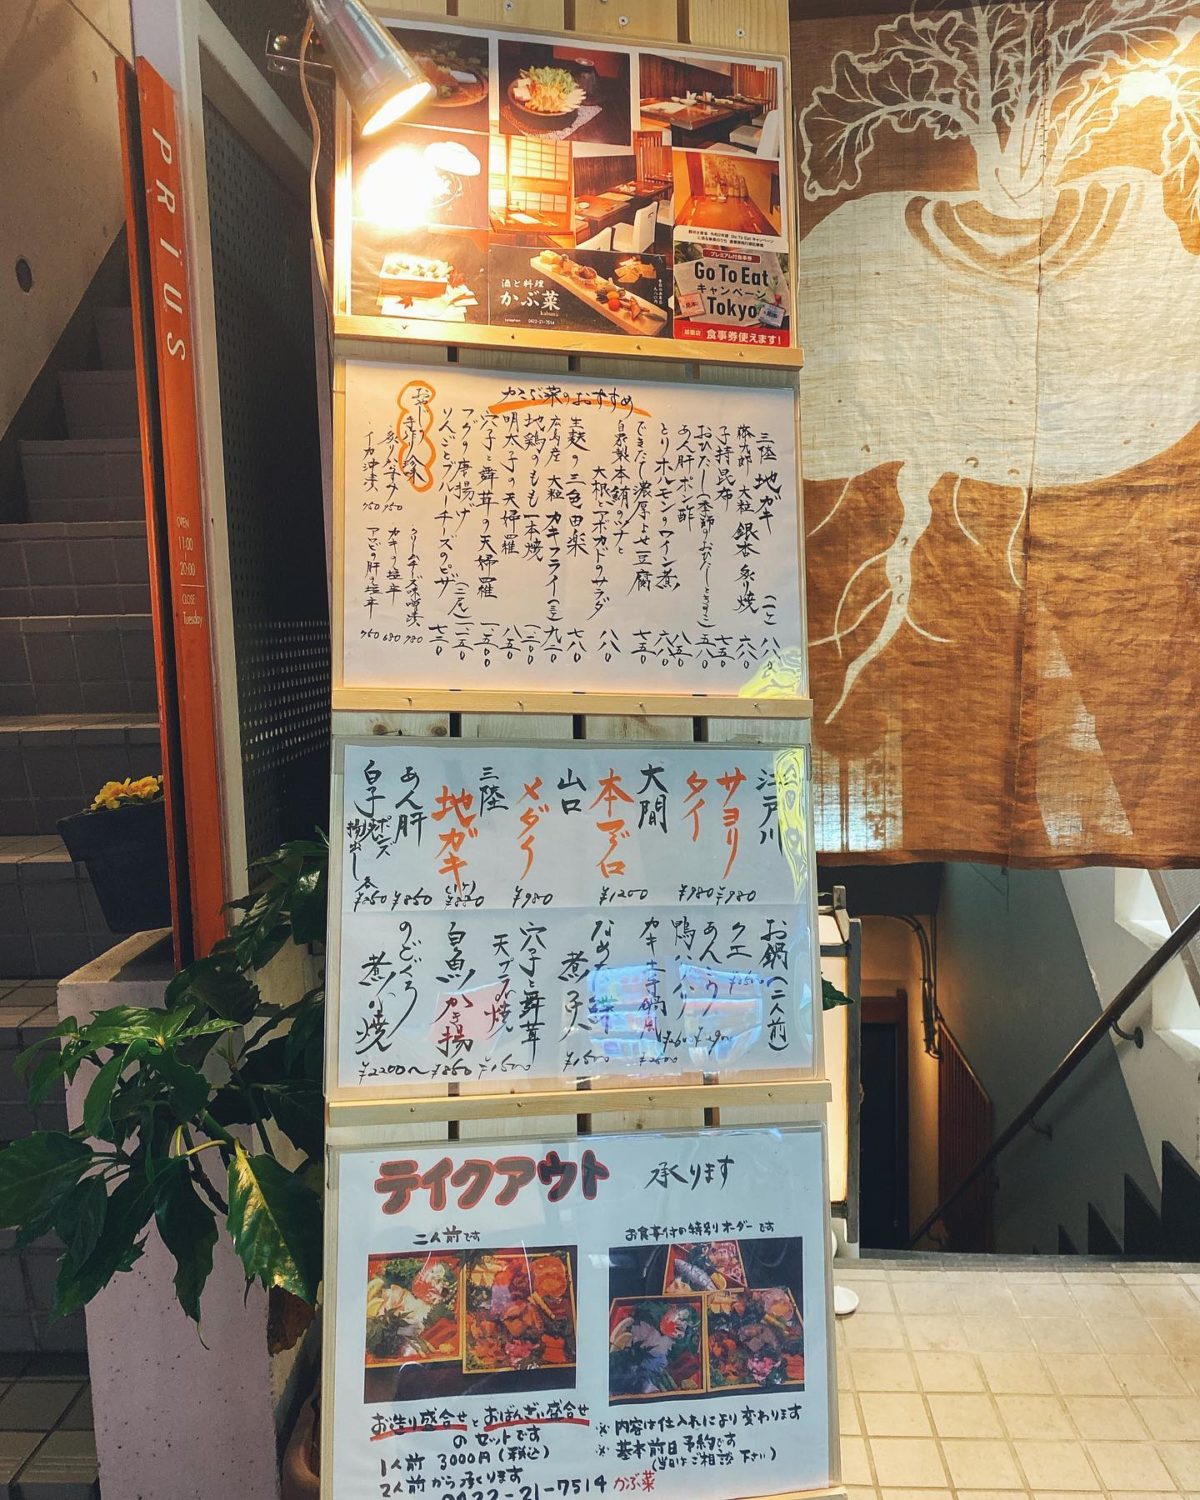 PRIUS
OPEN
11:00
20:00
CLOSE
Tuesday
酒と料理
かぶ菜
kabuna
0422-21-7514
プレミアム付食事券
Go To Eat
キャンペーン
Tokyo
加盟店 食事券使えます!
かぶ菜のおすすめ
三陸 地ガキ (一ヶ) 八八〇
藤九郎 大粒 銀杏 炙り焼 六八〇
子持昆布 七五〇
おひたし 五八〇
あん肝ポン酢 八五〇
とりホルモンのワイン煮 六八〇
できたし濃厚よせ豆腐 七五〇
自家製本鮪のツナと
大根とアボカドのサラダ 八八〇
生麩の三色田楽 七八〇
広島産 大粒 カキフライ
地鶏のもも一本焼
明太子の天婦羅 八五〇
穴子と舞茸の天婦羅 一五〇〇
フグの唐揚げ
りんごとブルーチーズのピザ
おやじ手作り珍味
イカ沖漬 750
クリームチーズ味噌漬 780
カキの塩辛 680
アワビの肝塩辛 750
江戸川
サヨリ ¥980
タイ ¥980
大間
本マグロ ¥1200
山口
メダイ ¥980
三陸
地ガキ (1ヶ) ¥880
あん肝 ¥850
白子 ポンズ 揚出し
お鍋(二人前)
クエ
あんこう
鴨ハリハリ
カキ土手鍋風
なめた鰈
煮子入 ¥1500
穴子と舞茸
天プラ ¥1500
白魚 かき揚 ¥850
のどぐろ
煮 焼 ¥2200〜
テイクアウト 承ります
二人前です
お食事付の特別オーダーです
お造り盛合せとおばんざい盛合せ
のセットです
1人前 3000円(税込)
2人前から承ります
0422-21-7514 かぶ菜
※内容は仕入れにより変わります
※基本前日予約です
(当日はご相談下さい)